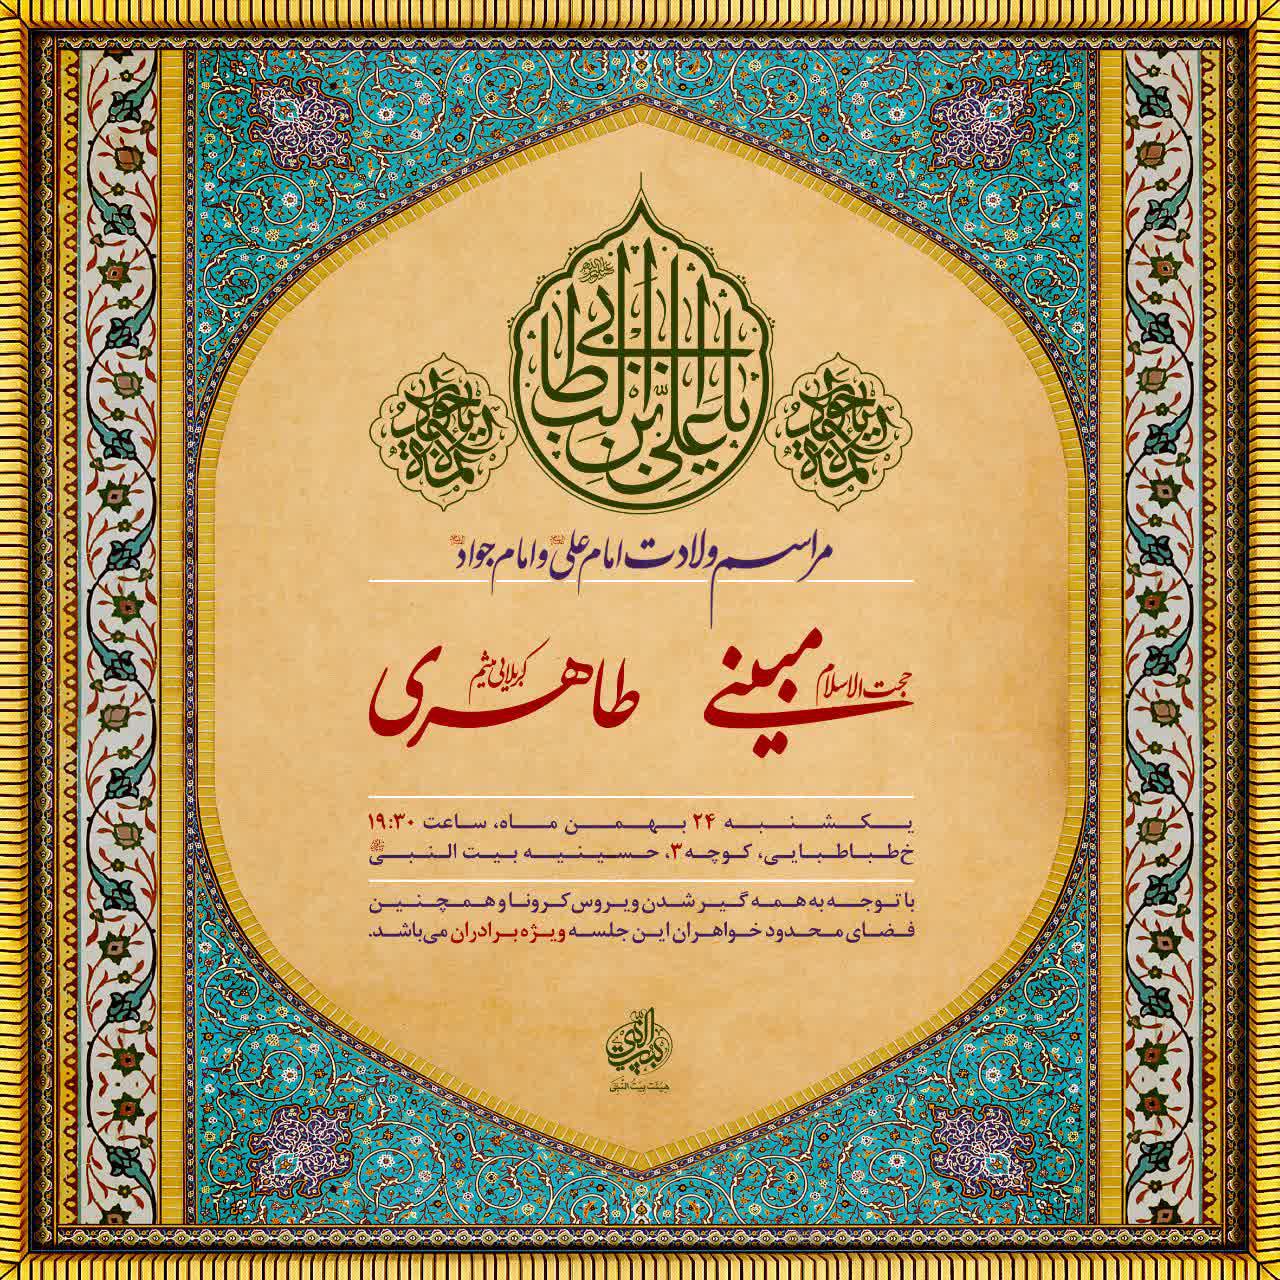 یا علی بن ابی طالب
علیه السلام
یا جواد الائمه
یا جواد الائمه
مراسم ولادت امام علی و امام جواد
حجت الاسلام مبینی
کربلایی میثم طاهری
یکشنبه ۲۴ بهمن ماه، ساعت ۱۹:۳۰
خ طباطبایی، کوچه ۳، حسینیه بیت النبی
با توجه به همه گیر شدن ویروس کرونا و همچنین
فضای محدود خواهران این جلسه ویژه برادران می‌باشد.
بیت النبی
هیئت بیت النبی